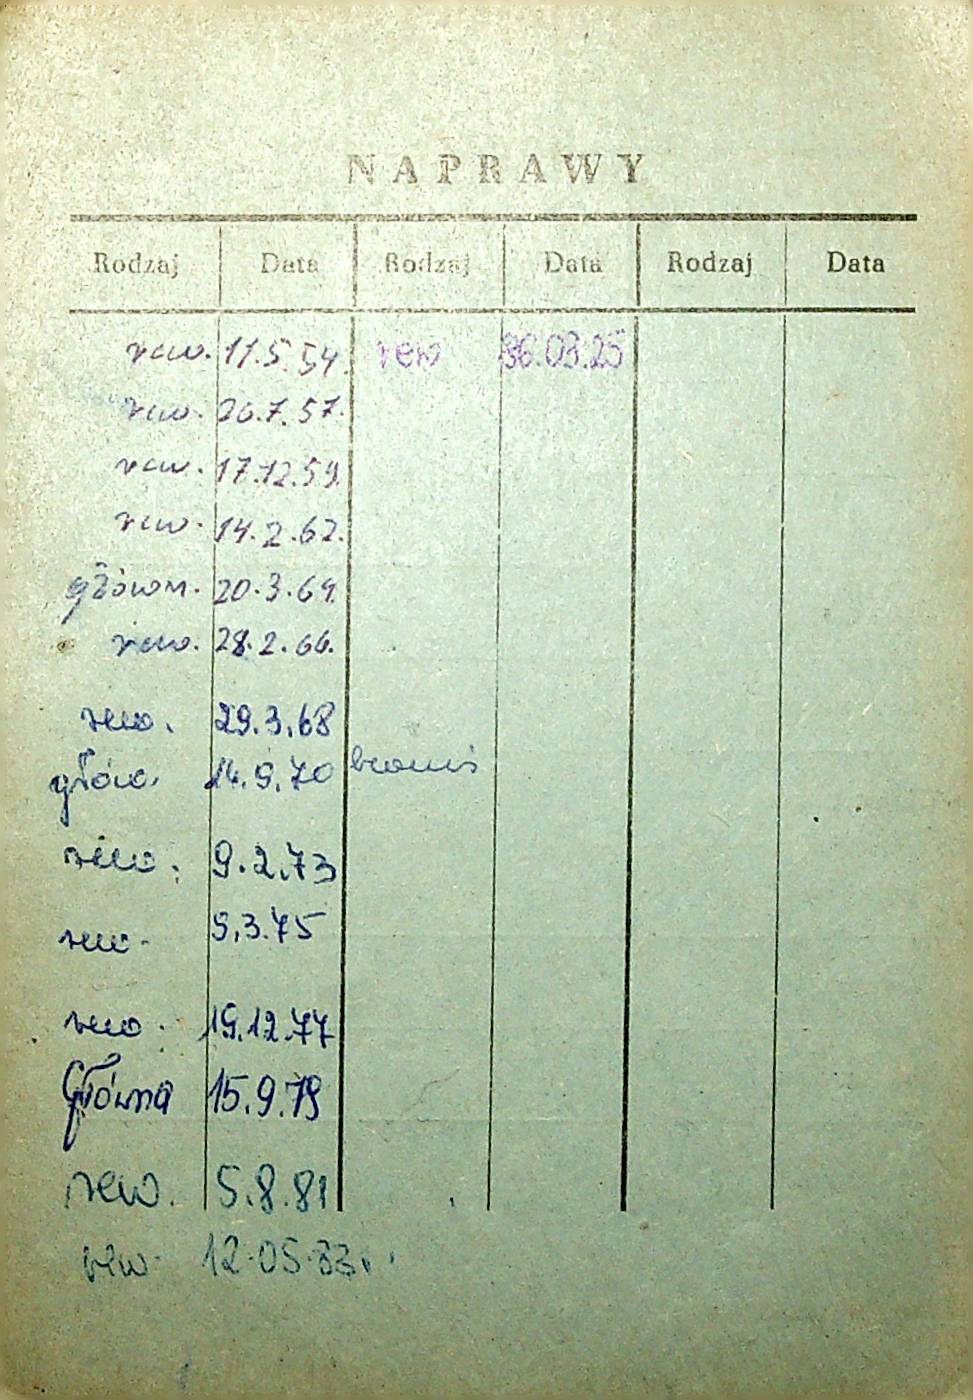 NAPRAWY
Rodzaj Data Rodzaj Data Rodzaj Data
rew. 11.5.54. rew
rew. 26.7.57.
rew. 17.12.59.
rew. 14.2.62.
główn. 20.3.64.
rew. 28.2.66.
rew. 29.3.68
głów. 14.9.70
rew. 9.2.73
rew. 9.3.75
rew. 19.12.77
Główna 15.9.79
rew. 5.8.81
rew. 12.05.83r.